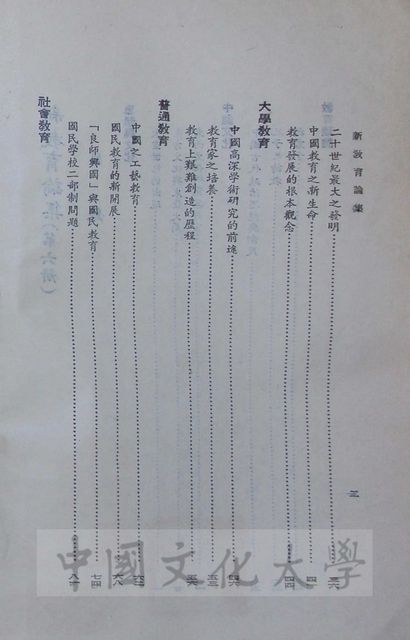 新教育論集
二十世紀最大之發明……三六
中國教育之新生命……四二
教育發展的根本觀念……四四
大學教育
中國高深學術研究的前途……四六
教育家之培養……五三
教育上艱難創造的歷程……五六
普通教育
中國之工藝教育……六二
國民教育的新開展……六八
「良師興國」與國民教育……七四
國民學校二部制問題……八一
社會教育
三
中國文化大學